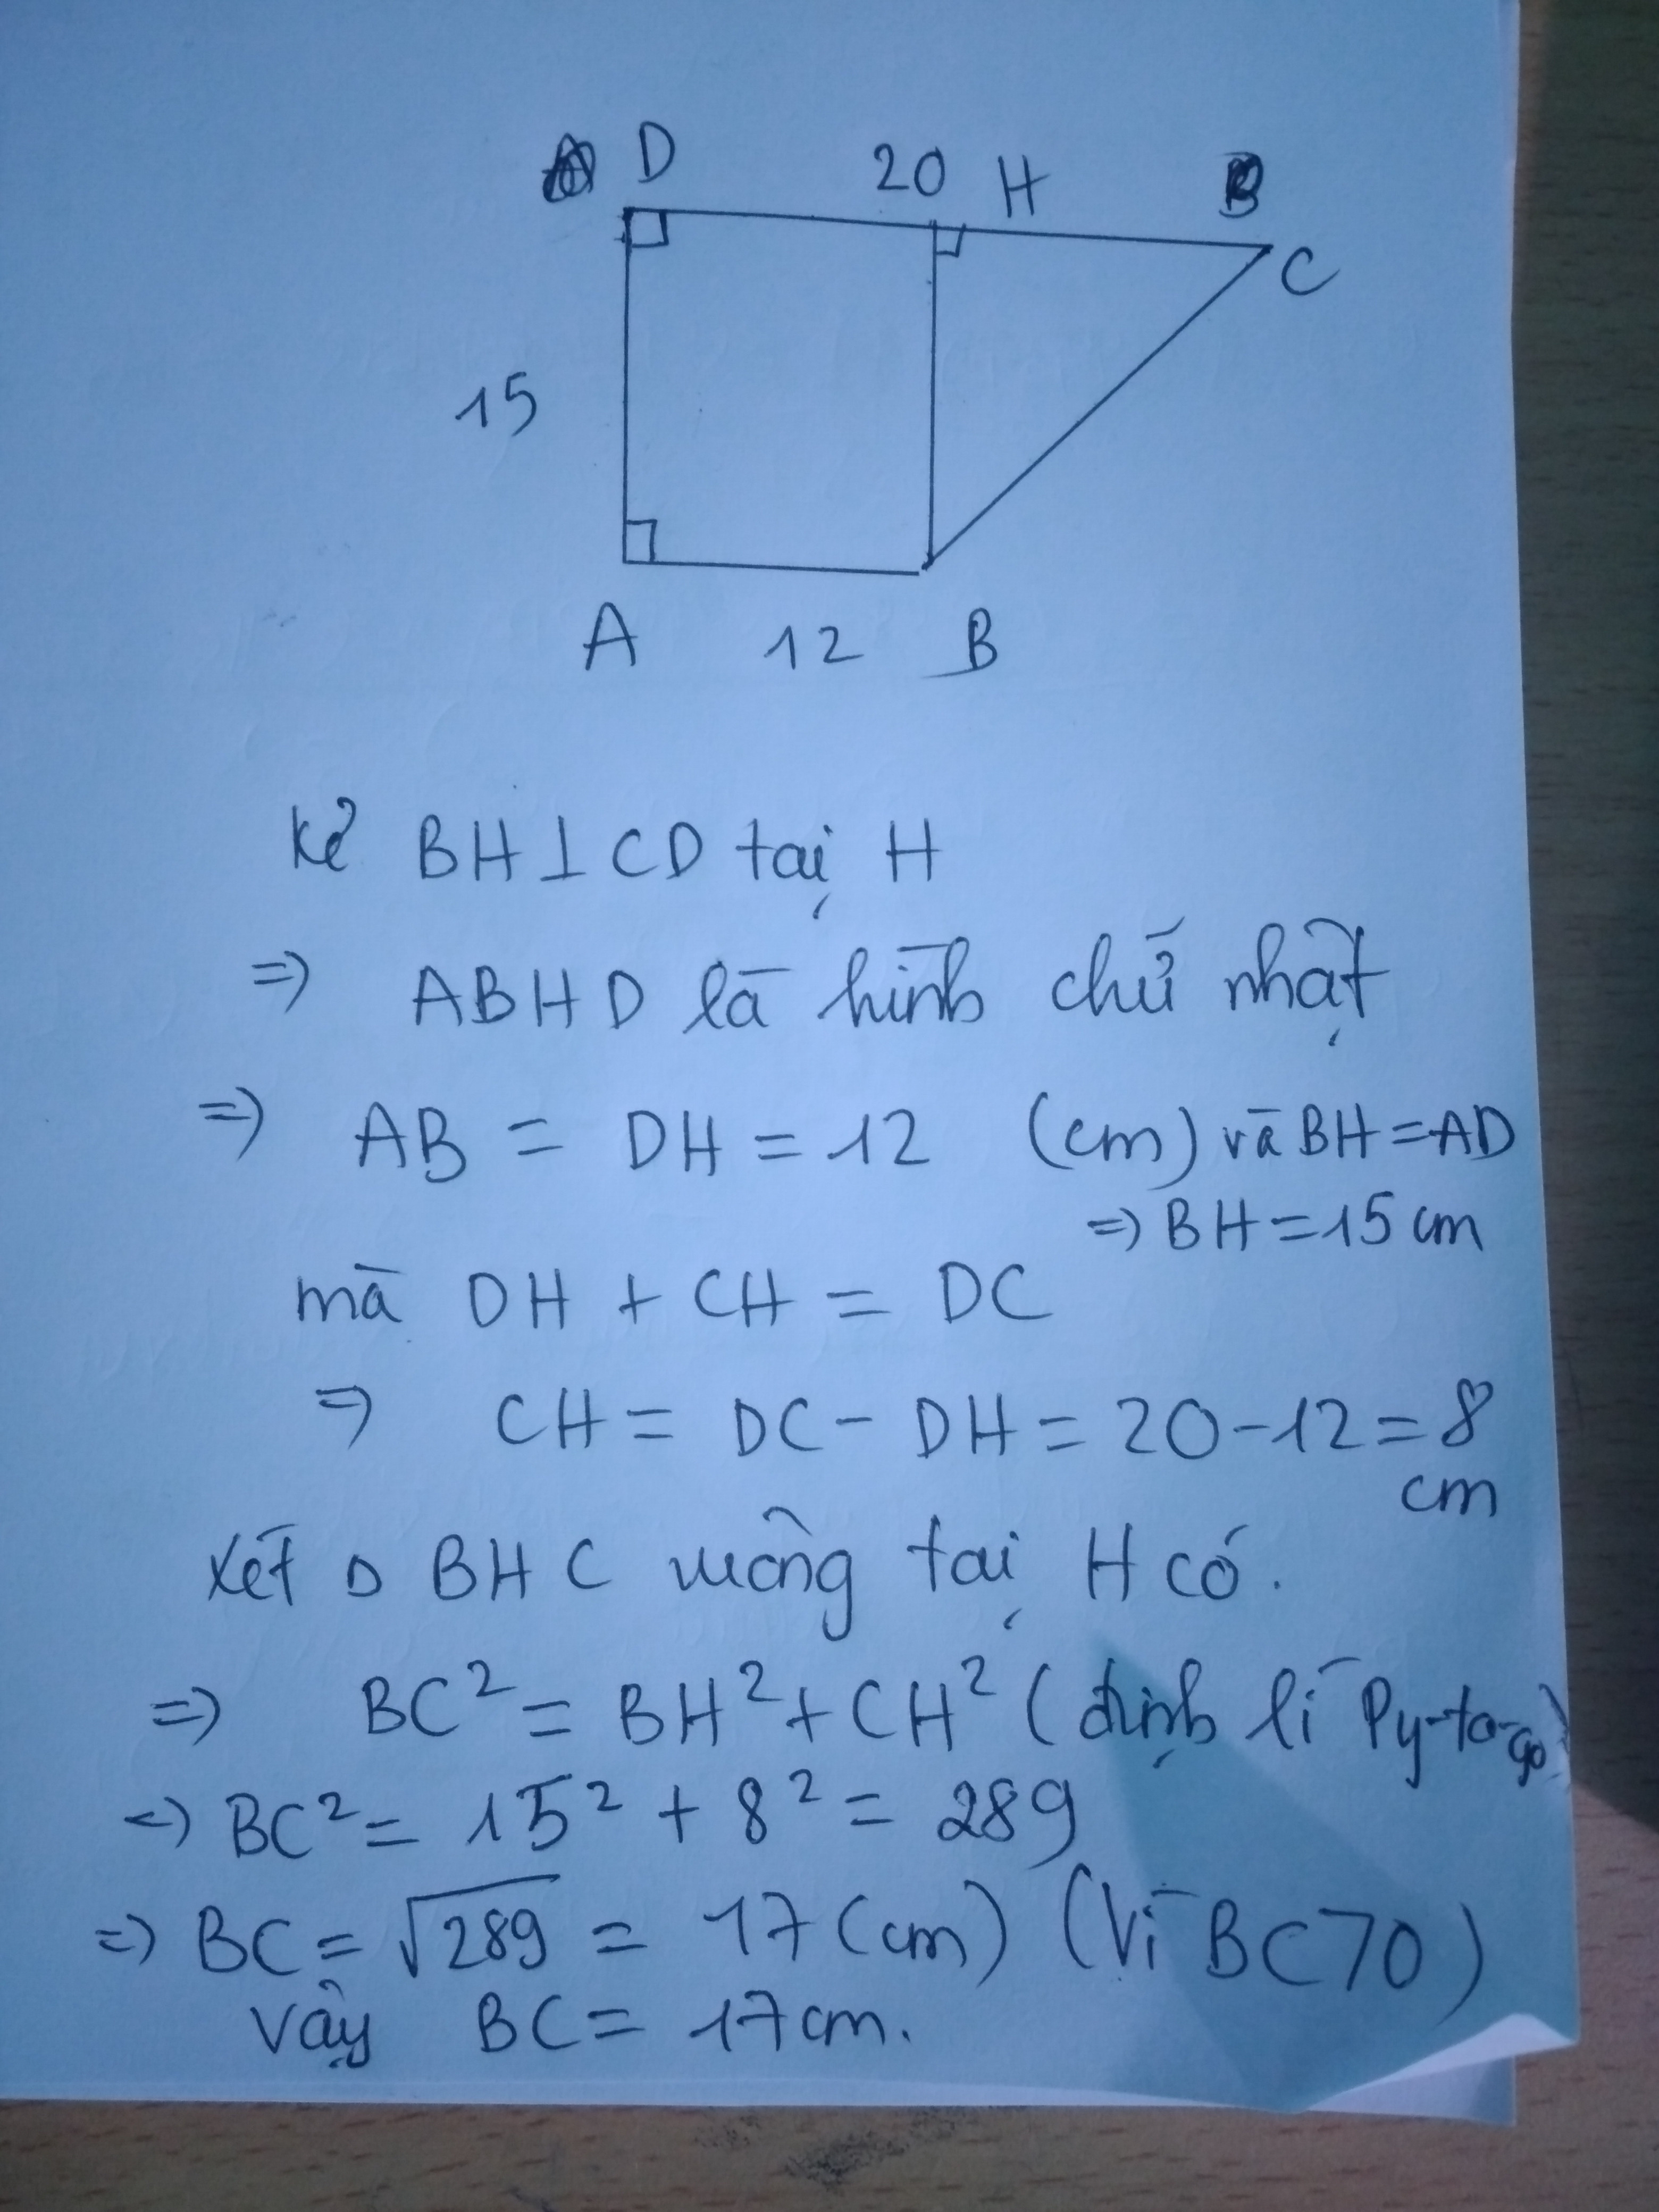 D 20 H
C
15
A 12 B
Kẻ BH ⊥ CD tại H
=> ABHD là hình chữ nhật
=> AB = DH = 12 (cm) và BH = AD
=> BH = 15 cm
mà DH + CH = DC
=> CH = DC - DH = 20 - 12 = 8
cm
Xét Δ BHC vuông tại H có.
=> BC² = BH² + CH² (định lí Py-ta-go)
=> BC² = 15² + 8² = 289
=> BC = √289 = 17 (cm) (Vì BC > 0)
Vậy BC = 17 cm.